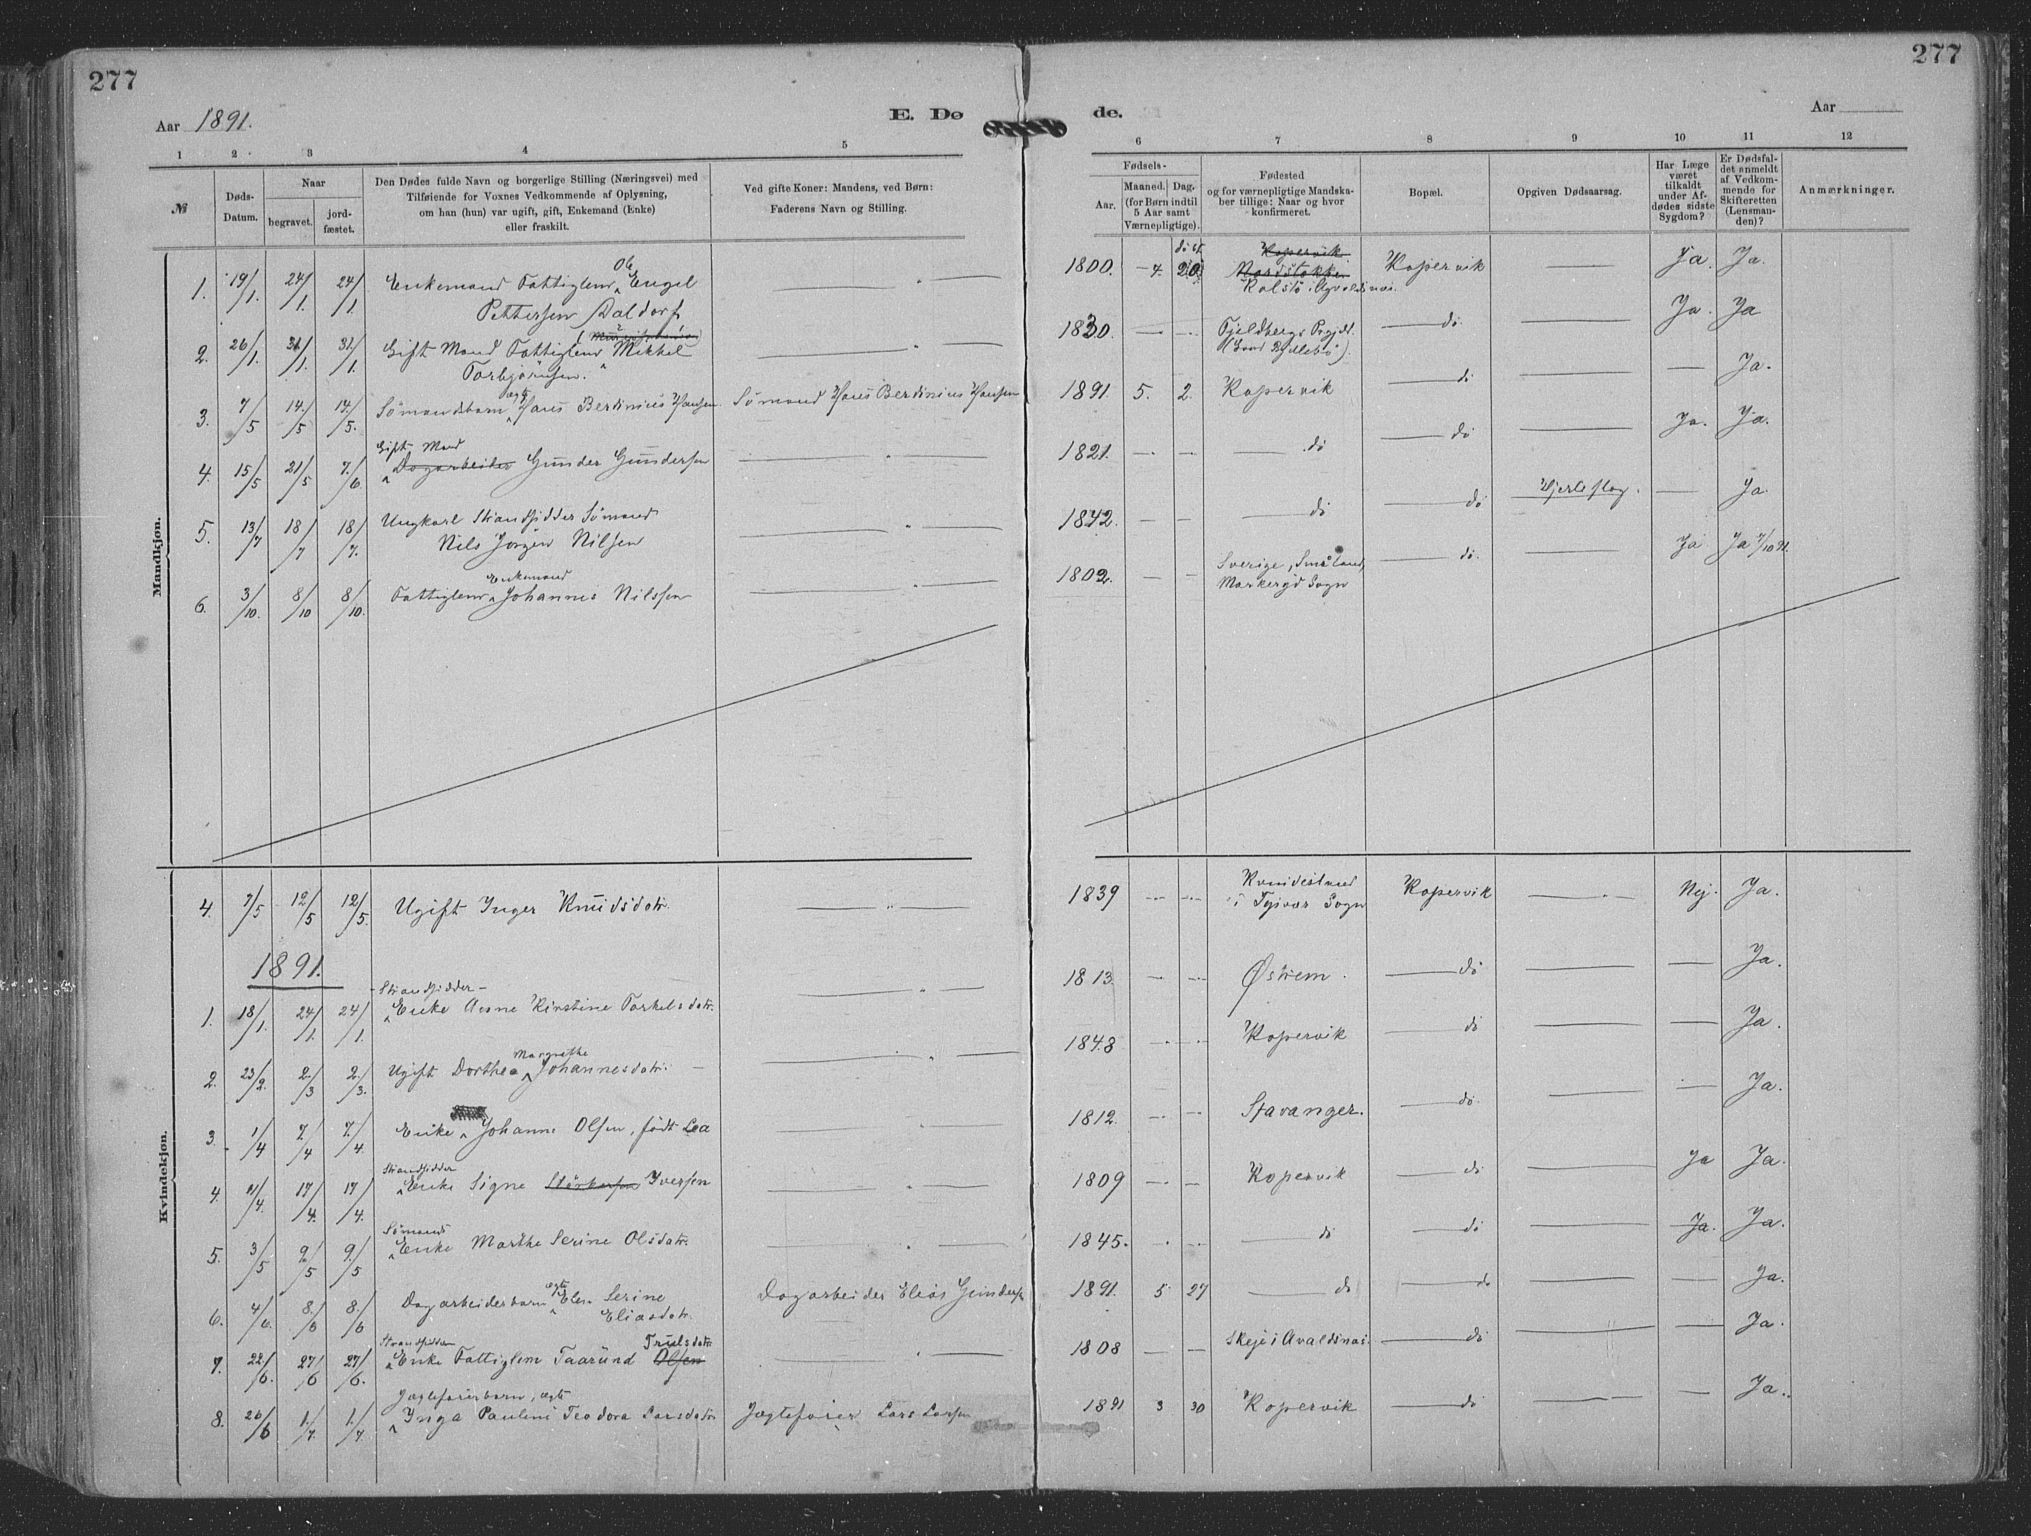 277
277
Aar 1891.
E. Dø
de.
Aar
1 2 3 4 5
6 7 8 9 10 11 12
№
Døds-Datum.
Naar
begravet.
jord-fæstet.
Den Dødes fulde Navn og borgerlige Stilling (Næringsvei) med
Tilføiende for Voxnes Vedkommende af Oplysning,
om han (hun) var ugift, gift, Enkemand (Enke)
eller fraskilt.
Ved gifte Koner: Mandens, ved Børn:
Faderens Navn og Stilling.
Fødsels-
Aar.
Maaned. Dag.
(for Børn indtil
5 Aar samt
Værnepligtige).
Fødested
og for værnepligtige Mandska-
ber tillige: Naar og hvor
konfirmeret.
Bopæl.
Opgiven Dødsaarsag.
Har Læge
været
tilkaldt
under Af-
dødes sidste
Sygdom?
Er Dødsfal-
det anmeldt
af Vedkom-
mende for
Skifteretten
(Lensman-
den)?
Anmærkninger.
Mandkjøn.
1. 19/1. 24/1. 24/1. Enkemand Fattiglem Ole Engel
Pettersen Daldorf
1800. 4. 20 Kopervik Ja. Ja.
2. 26/1. 31/1. 31/1. Gift Mand Fattiglem Mikkel
Torbjørnsen.
1830. Fjeldbergs Prgjld. dö Ja. Ja
3. 7/5 14/5 14/5. Sömandsbarn ægte Hans Berdinius Hansen. Sömand Hans Berdinius Hansen 1891. 5. 2. Kopervik dö Ja.
Gift Mand
4. 15/5 21/5 7/6 Dagarbeider Gunder Gundersen 1821. dö dö Ja. Ja.
5. 13/7 18/7 18/7. Ungkarl Strandsidder Sömand
Nils Jorgen Nilsen
1842. dö dö Hjerteslag. Ja.
Enkemand
6. 3/10. 8/10 8/10. Fattiglem Johannes Nilssen
1802. Sverige, Småland,
Markeryd Sogn dö. Ja. Ja 7/10 91.
Kvindekjøn.
4. 7/5 12/5 12/5. Ugift Inger Knudsdatr. 1839
i Tysvær Sogn Kopervik Nej. Ja.
1891.
Strandsidder
1. 18/1. 24/1. 24/1. Enke Aasne Kirstine Torkelsdatr. 1813. Østrem. dö Ja.
2. 23/2. 2/3 2/3. Ugift Dorthea Margrethe Johannesdatr. 1848 Kopervik dö Ja.
3. 1/4 7/4 7/4. Enke Johanne Olsen, født Lea 1812. Stavanger. dö. Ja.
Strandsidder
4. 11/4. 17/4. 17/4. Enke Signe Størkersen Iversen 1809 Kopervik dö Ja Ja.
Sömands
5. 3/5 9/5 9/5 Enke Marthe Serine Olsdatr. 1845. dö dö Ja. Ja.
6. 4/6. 8/6 8/6 Dagarbeiderbarn ægte Elen Serine
Eliasdatr.
Dagarbeider Elias Gunders 1891. 5 27 dö dö Ja.
Strandsidder Trulsdatr
7. 22/6. 27/6 27/6. Enke Fattiglem Taarund Olsen 1808 Skeje i Avaldsnæs dö Ja.
Jægtefoierbarn, ægte
8. 26/6 1/7. 1/7. Inga Pauleni Teodora Larsdatr Jægtefoier Lars Larsen 1891 3 30 Kopervik dö Ja.